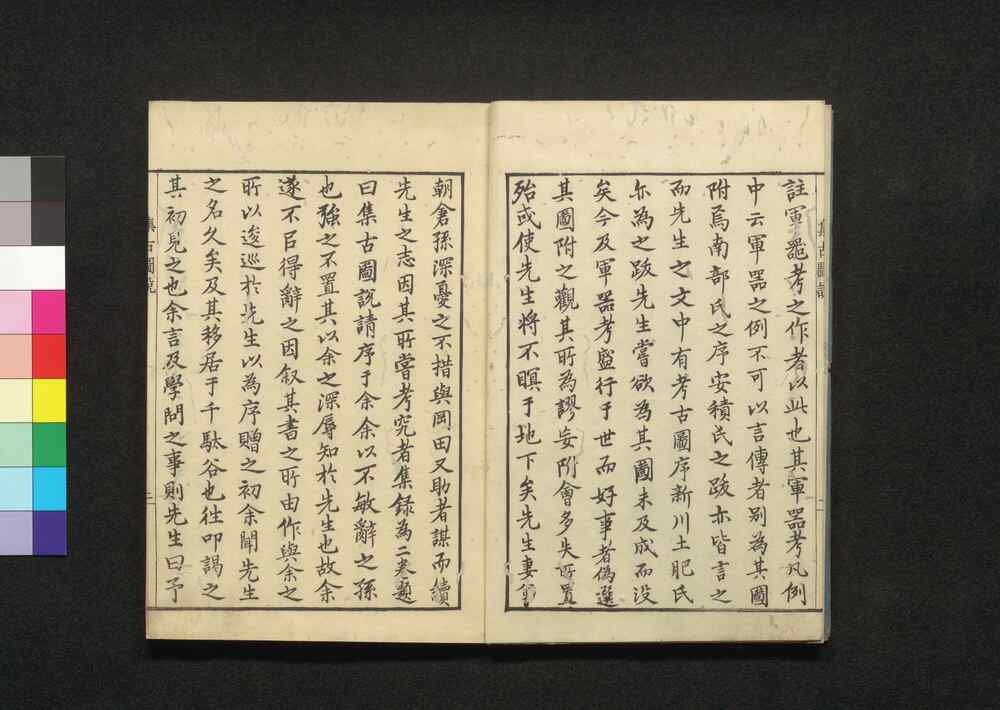 註軍器考之作者以此也其軍器考凡例
中云軍器之例不可以言傳者別為其圖
附焉南部氏之序安積氏之跋亦皆言之
而先生之文中有考古圖序新川土肥氏
亦為之跋先生嘗欲為其圖未及成而没
矣今及軍器考盛行于世而好事者偽選
其圖附之觀其所為謬妄附會多失所置
殆或使先生将不瞑于地下矣先生妻
朝倉孫深憂之不措與岡田又助者謀而續
先生之志因其所嘗考究者集録為二巻題
曰集古圖説請序于余余以不敏辭之孫
也強之不置其以余之深辱知於先生也故余
遂不㠯得辭之因叙其書之所由作與余之
所以逡巡於先生以為序贈之初余聞先生
之名久矣及其移居于千駄谷也往叩謁之
其初見之也余言及學問之事則先生曰予
集古圖說
二